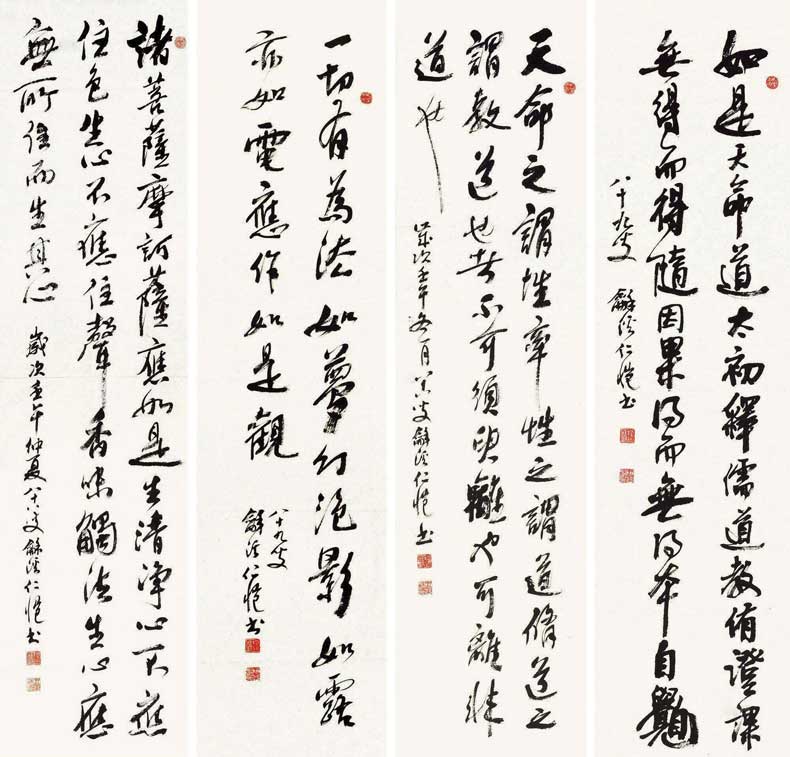 如是天命道太初釋儒道教脩證課
無得而得隨因果得而無得本自覺
八十九叟 龢溪仁愷書
天命之謂性率性之謂道脩道之
謂教道也者不可須臾離也可離非
道也
歲次壬午冬月八十八叟龢溪仁愷書
一切有為法如夢幻泡影如露
亦如電應作如是觀
八十九叟
龢溪仁愷書
諸菩薩摩訶薩應如是生清淨心不應
住色生心不應住聲香味觸法生心應
無所住而生其心 歲次壬午仲夏八十八叟龢溪仁愷書